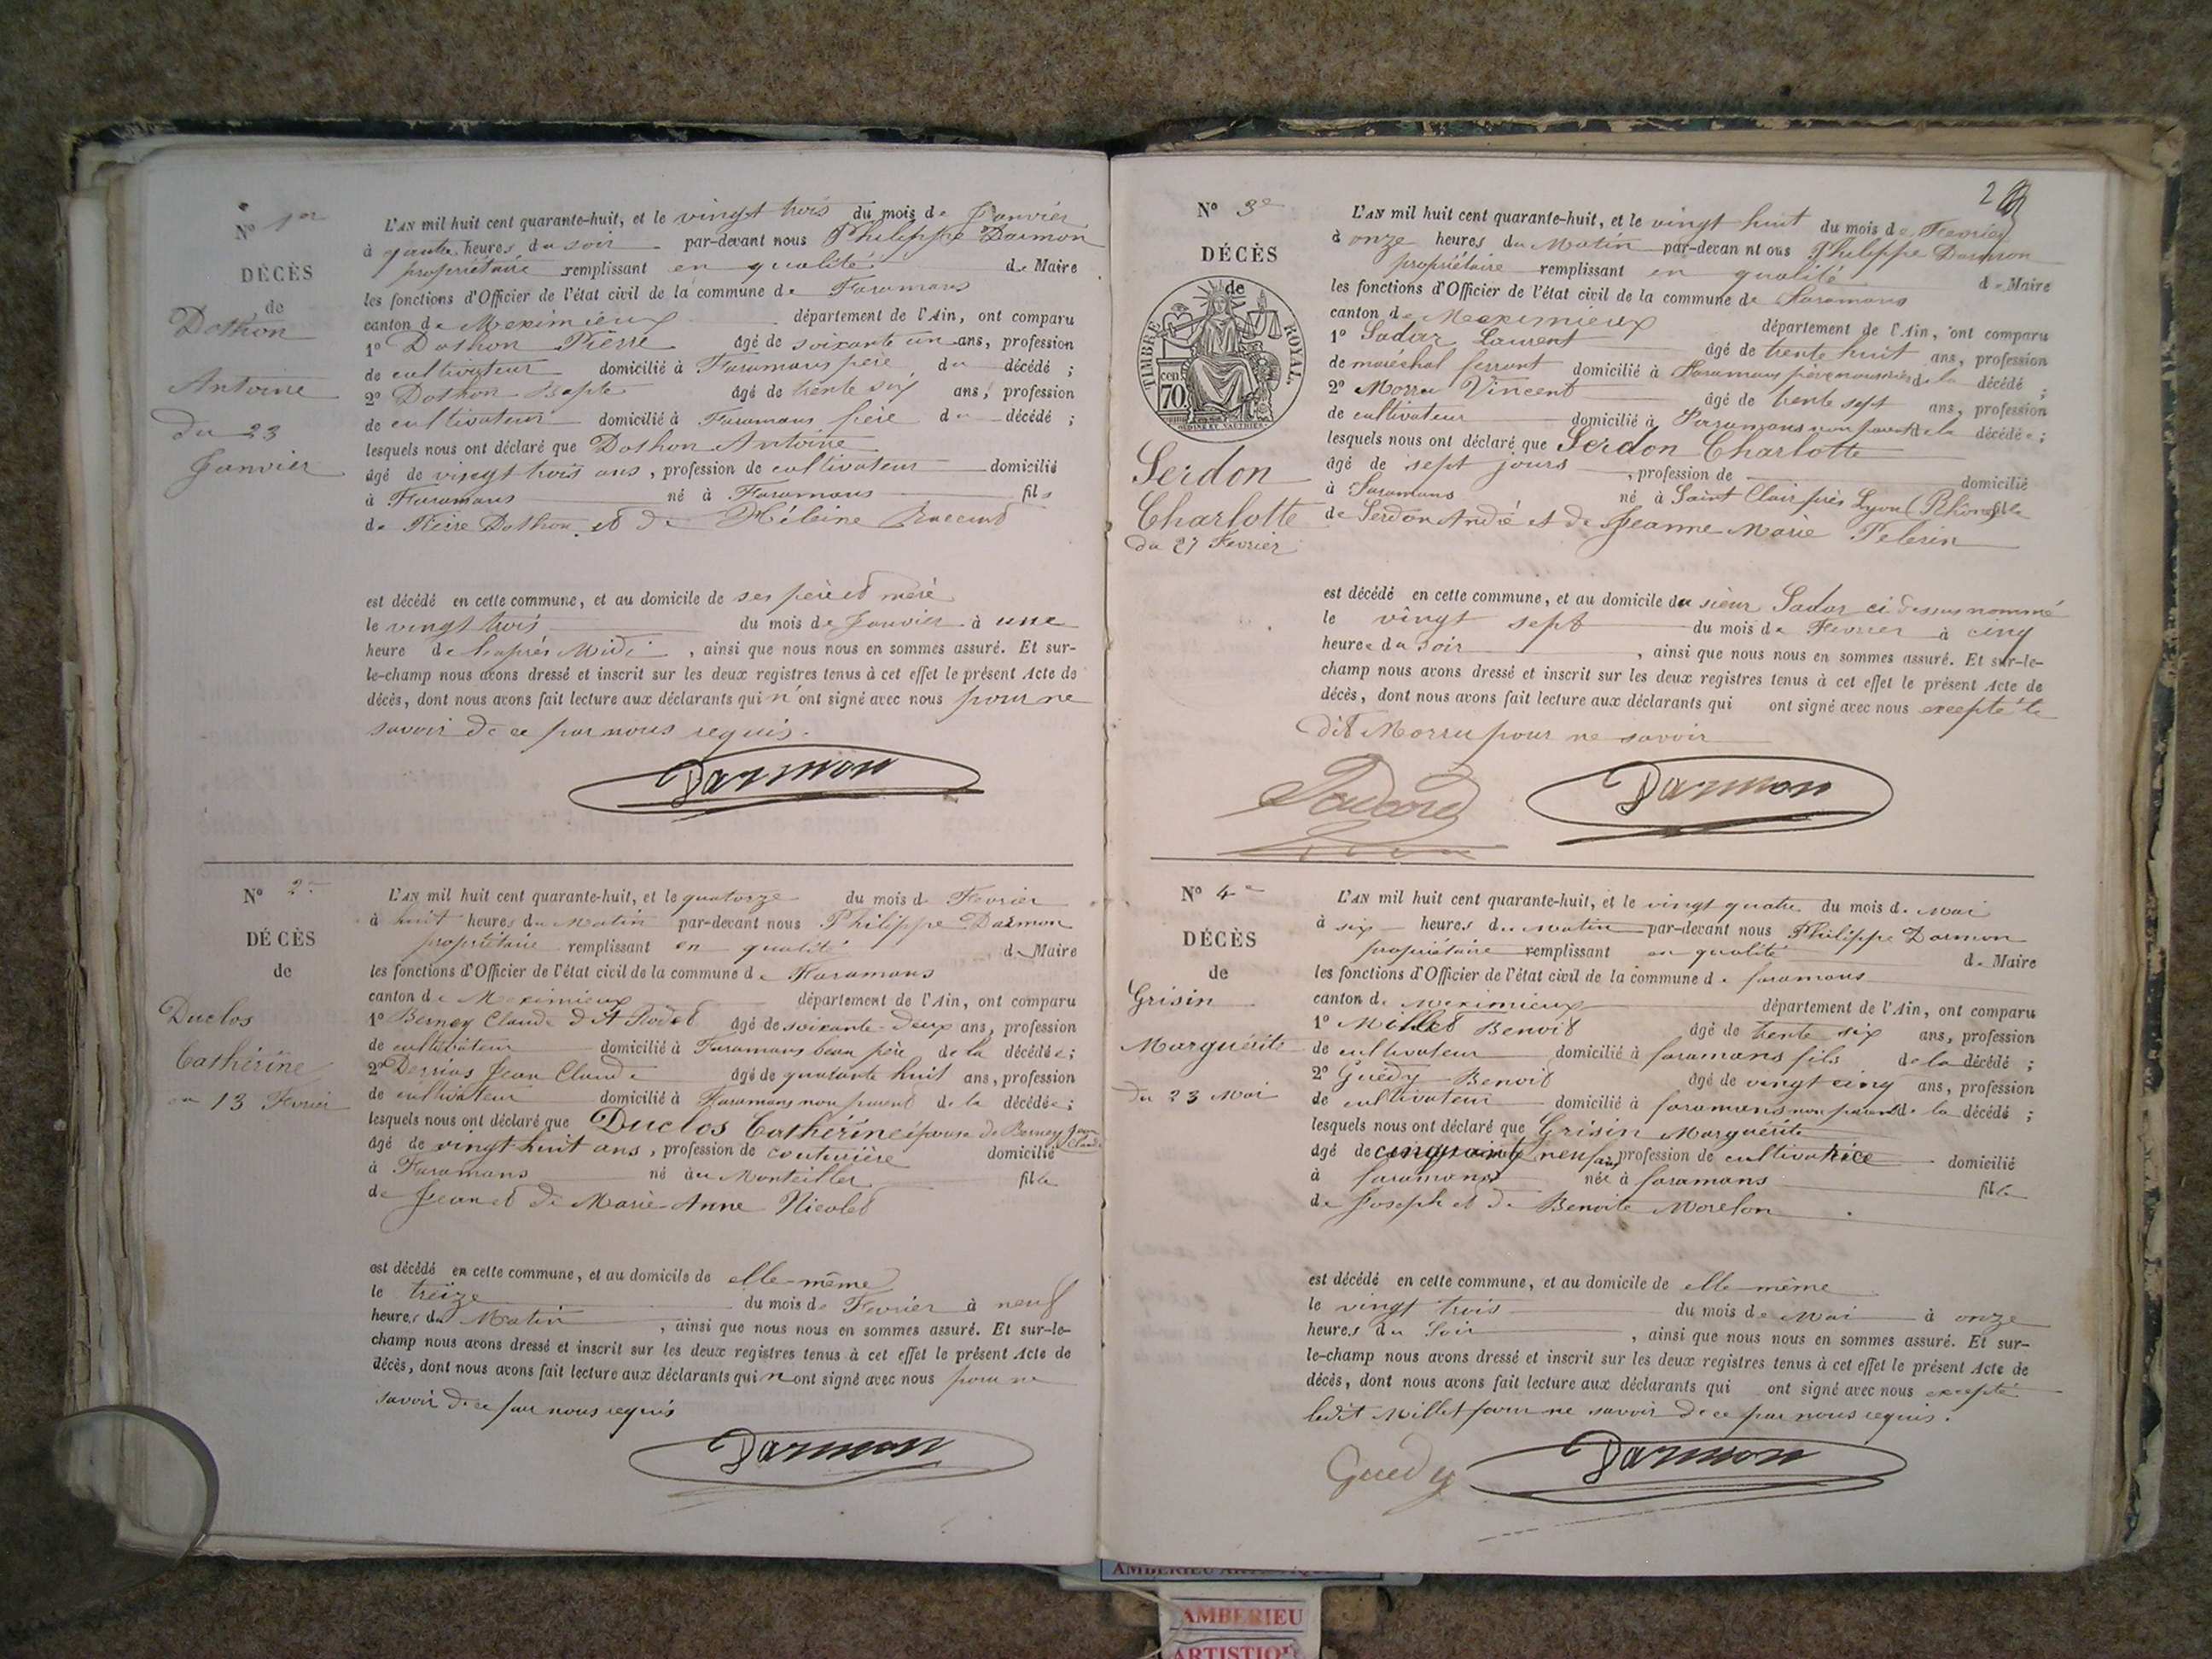 N° 1er
DÉCÈS
de
Dothon
Antoine
Du 23
Janvier
L'AN mil huit cent quarante-huit, et le vingt trois du mois de Janvier
à quatre heures du soir par-devant nous Philippe Darmon
propriétaire remplissant en qualité de Maire
les fonctions d'Officier de l'état civil de la commune de Faramans
canton de Meximieux département de l'Ain, ont comparu
1° Dothon Pierre âgé de soixante un ans, profession
de cultivateur domicilié à Faramans père du décédé ;
2° Dothon Bapte âgé de trente six ans, profession
de cultivateur domicilié à Faramans frère du décédé ;
lesquels nous ont déclaré que Dothon Antoine
âgé de vingt trois ans, profession de cultivateur domicilié
à Faramans né à Faramans fils
de Pierre Dothon et de Héleine
est décédé en cette commune, et au domicile de ses père et mère
le vingt trois du mois de Janvier à une
heure de l'après Midi, ainsi que nous nous en sommes assuré. Et sur-
le-champ nous avons dressé et inscrit sur les deux registres tenus à cet effet le présent Acte de
décès, dont nous avons fait lecture aux déclarants qui n'ont signé avec nous pour ne
savoir de ce par nous requis.
Darmon
N° 2e
DÉCÈS
de
Duclos
Cathérine
du 13 Fevrier
L'AN mil huit cent quarante-huit, et le quatorze du mois de Fevrier
à huit heures du Matin par-devant nous Philippe Darmon
propriétaire remplissant en qualité de Maire
les fonctions d'Officier de l'état civil de la commune de Faramans
canton de Meximieux département de l'Ain, ont comparu
1° Berney Claude dit âgé de soixante-deux ans, profession
de cultivateur domicilié à Faramans beau père de la décédée ;
2° Jean Claude âgé de quarante huit ans, profession
de cultivateur domicilié à Faramans non parent de la décédée ;
lesquels nous ont déclaré que Duclos Cathérine épouse de Berney Jean Claude
âgé de vingt huit ans, profession de couturière domicilié
à Faramans né au Monteiller fille
de Jean et de Marie-Anne Nicolet
est décédé en cette commune, et au domicile de elle-même
le treize du mois de Fevrier à neuf
heures du Matin, ainsi que nous nous en sommes assuré. Et sur-le-
champ nous avons dressé et inscrit sur les deux registres tenus à cet effet le présent Acte de
décès, dont nous avons fait lecture aux déclarants qui n'ont signé avec nous pour ne
savoir de ce par nous requis
Darmon
2
N° 3e
DÉCÈS
de
TIMBRE ROYAL.
70 cen
Serdon
Charlotte
du 27 Fevrier
L'AN mil huit cent quarante-huit, et le vingt huit du mois de Fevrier
à onze heures du Matin par-devant nous Philippe Darmon
propriétaire remplissant en qualité de Maire
les fonctions d'Officier de l'état civil de la commune de Faramans
canton de Meximieux département de l'Ain, ont comparu
1° Sadar Laurent âgé de trente huit ans, profession
de maréchal ferrant domicilié à Faramans père nourricier de la décédé ;
2° Morru Vincent âgé de trente sept ans, profession
de cultivateur domicilié à Faramans non parent de la décédée ;
lesquels nous ont déclaré que Serdon Charlotte
âgé de sept jours, profession de domicilié
à Faramans né à Saint Clair près Lyon (Rhône) fille
de Serdon André et de Jeanne Marie Pelerin
est décédé en cette commune, et au domicile du sieur Sadar ci dessus nommé
le vingt sept du mois de Fevrier à cinq
heures du Soir, ainsi que nous nous en sommes assuré. Et sur-le-
champ nous avons dressé et inscrit sur les deux registres tenus à cet effet le présent Acte de
décès, dont nous avons fait lecture aux déclarants qui ont signé avec nous excepté le
dit Morru pour ne savoir
Darmon
N° 4e
DÉCÈS
de
Grisin
Marguérite
du 23 Mai
L'AN mil huit cent quarante-huit, et le vingt quatre du mois de Mai
à six heures du matin par-devant nous Philippe Darmon
propriétaire remplissant en qualité de Maire
les fonctions d'Officier de l'état civil de la commune de faramans
canton de Meximieux département de l'Ain, ont comparu
1° Millet Benoit âgé de trente six ans, profession
de cultivateur domicilié à faramans fils de la décédé ;
2° Guédy Benoit âgé de vingt cinq ans, profession
de cultivateur domicilié à faramans non parent de la décédé ;
lesquels nous ont déclaré que Grisin Marguérite
âgé de cinquante neuf ans profession de cultivatrice domicilié
à faramans née à faramans fille
de Joseph et de Benoite Morelon
est décédé en cette commune, et au domicile de elle même
le vingt trois du mois de Mai à onze
heures du Soir, ainsi que nous nous en sommes assuré. Et sur-
le-champ nous avons dressé et inscrit sur les deux registres tenus à cet effet le présent Acte de
décès, dont nous avons fait lecture aux déclarants qui ont signé avec nous excepté
ledit Millet pour ne savoir de ce par nous requis.
Guedy Darmon
AMBERIEU
ARTISTIQUE